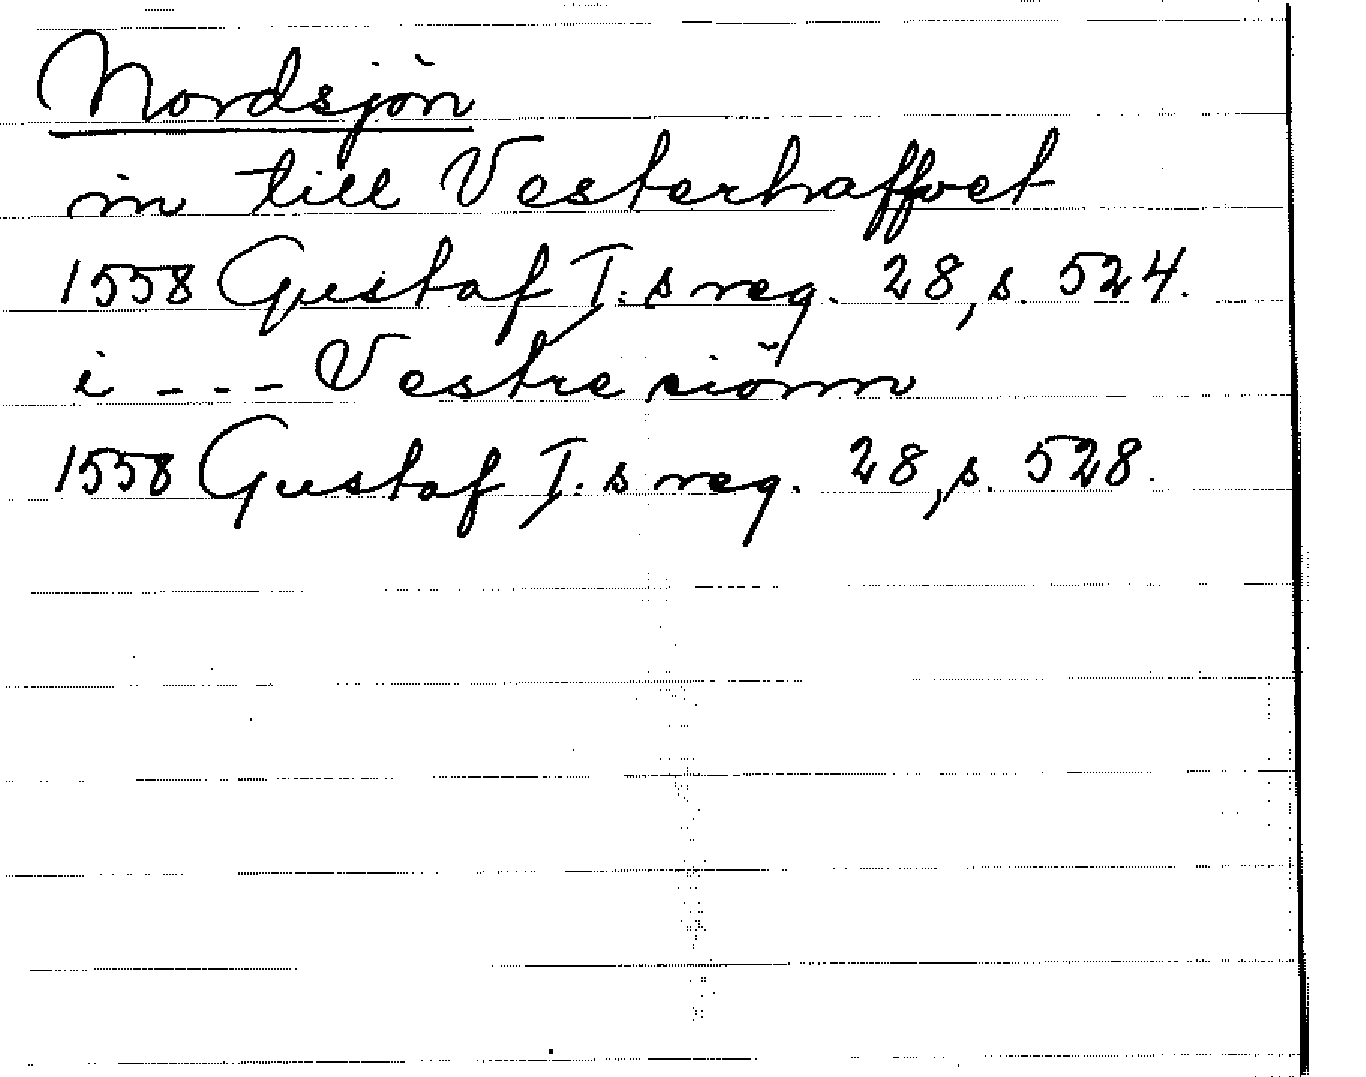 Nordsjön
in till Vesterhaffvet
1558 Gustaf I:s reg. 28, s. 524.
i - - - Vestre siönn
1558 Gustaf I:s reg. 28, s. 528.